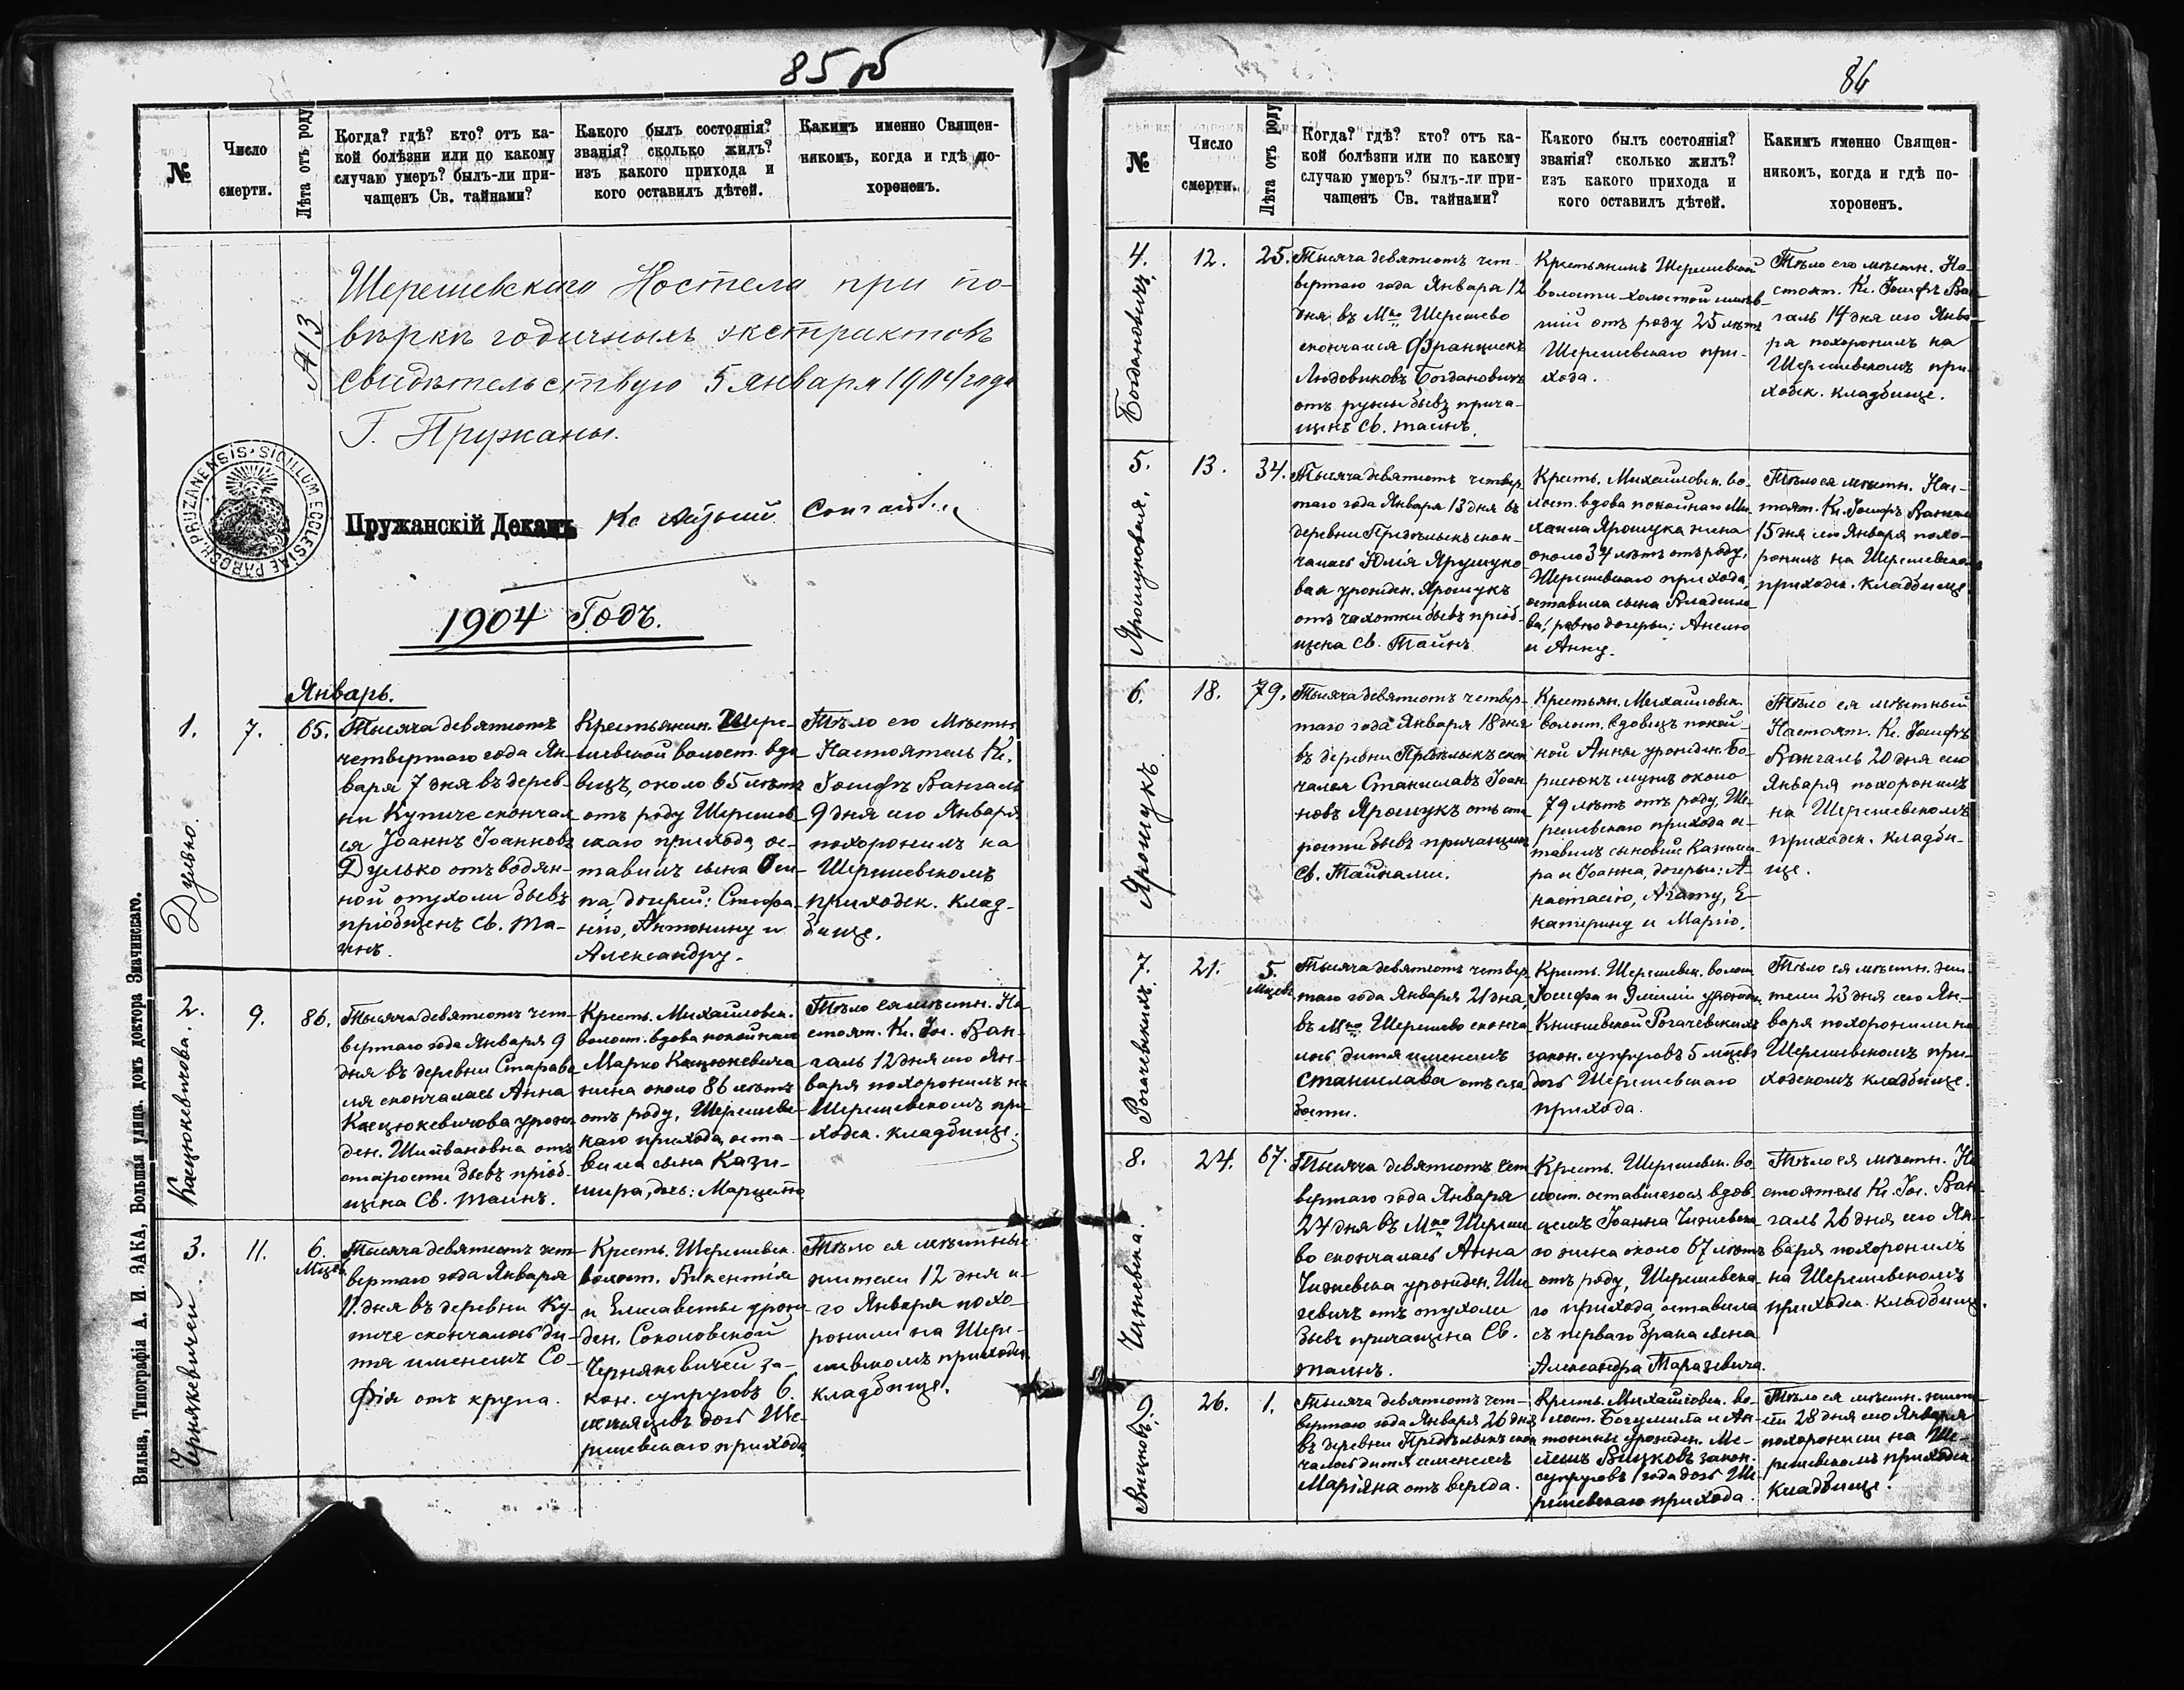 85 об
№
Число
смерти.
Лѣта отъ роду
Когда? гдѣ? кто? отъ ка-
кой болѣзни или по какому
случаю умеръ? былъ-ли при-
чащенъ Св. тайнами?
Какого былъ состоянія?
званія? сколько жилъ?
изъ какого прихода и
кого оставилъ дѣтей.
Какимъ именно Священ-
никомъ, когда и гдѣ по-
хороненъ.
Шерешевскаго Костела при по-
вѣркѣ годичныхъ экстрактовъ
свидѣтельствую 5 Января 1904 года
Г. Пружаны.
13
SIGILLUM ECCLESIAE PAROCH PRUZANENSIS
Пружанскій Деканъ
1904 Годъ.
Январь.
1.
7.
65.
Дулько.
Тысяча девятьсотъ
четвертаго года Ян-
варя 7 дня въ дерев-
ни Купиче скончал
ся Іоаннъ Іоанновъ
Дулько отъ водян-
ной опухоли бывъ
пріобщенъ Св. Та-
инъ.
Крестьянин. Шере-
шевской волост. вдо
вецъ, около 65 лѣтъ
отъ роду Шерешев-
скаго прихода, ос-
тавилъ сына Оси-
па, дочерей: Стефа-
нію, Антонину и
Александру.
Тѣло его Мѣстн
Настоятель Кс.
Іосифъ Вангаль
9 дня его Января
похоронилъ на
Шерешевскомъ
приходск. клад-
бище.
2.
9.
86.
Кацюкевичова.
Тысяча девятьсотъ чет-
вертаго года Января 9
дня въ деревни Старово
ля скончалась Анна
Кацюкевичова урож
ден. Шиивановна отъ
старости бывъ пріоб-
щена Св. Таинъ.
Крестъ. Михайловск.
волост. вдова покойнаго
Марко Кацюкевича
жена около 86 лѣтъ
отъ роду, Шерешевс
каго прихода, оста-
вила сына Кази-
мира, доч: Марцелю
Тѣло ея мѣстн. На
стоят. Кс. Іос. Ван-
галь 12 дня его Ян-
варя похоронилъ на
Шерешевскомъ при
ходск. кладбище.
3.
11.
6.
Мцев.
Чернякевичей
Тысяча девятьсотъ чет-
вертаго года Января
11 дня въ деревни Ку-
пиче скончалось ди-
тя именемъ Со-
фія отъ крупа.
Крестъ. Шерешевск.
волост. Викентія
и Елисаветы урож
ден. Соколовской
Чернякевичей за-
кон. супруговъ 6.
мѣсяцевъ дочь Ше-
решевскаго прихода
Тѣло ея мѣстные
жители 12 дня е-
го Января похо-
ронили на Шере-
шевскомъ приходск.
кладбище.
Вильна, Типографія А. И. ЗАКА, Большая улица, домъ доктора Значинскаго.
86
№
Число
смерти.
Лѣта отъ роду
Когда? гдѣ? кто? отъ ка-
кой болѣзни или по какому
случаю умеръ? былъ-ли при-
чащенъ Св. тайнами?
Какого былъ состоянія?
званія? сколько жилъ?
изъ какого прихода и
кого оставилъ дѣтей.
Какимъ именно Священ-
никомъ, когда и гдѣ по-
хороненъ.
4.
12.
25.
Богдановичъ.
Тысяча девятьсотъ чет-
вертаго года Января 12
дня въ Мко Шерешево
скончался Францискъ
Людовиковъ Богдановичъ
отъ руны бывъ прича-
щенъ Св. таинъ.
Крестьянинъ Шерешевской
волости холостой имѣв-
шій отъ роду 25 лѣтъ
Шерешевскаго при-
хода.
Тѣло его мѣстн. На-
стоят. Кс. Іосифъ Ван-
галь 14 дня его Янва-
ря похоронилъ на
Шерешевскомъ при-
ходск. кладбище.
5.
13.
34.
Ярошуковая.
Тысяча девятьсотъ четвер
таго года Января 13 дня въ
деревни Предѣлыскъ скон-
чалась Юлія Ярошуко-
вая урожден. Ярошукъ
отъ чахотки бывъ пріоб-
щена Св. Таинъ
Крестъ. Михайловск. во-
лост. вдова покойнаго Ми
хаила Ярошука жена
около 34 лѣтъ отъ роду,
Шерешевскаго прихода,
оставила сына Владисла
ва, равно дочерьи: Анелю
и Анну.
Тѣло ея мѣстн. Нас-
тоят. Кс. Іосифъ Вангаль
15 дня его Января похо-
ронилъ на Шерешевскомъ
приходск. кладбище
6.
18.
79.
Ярошукъ
Тысяча девятьсотъ четвер-
таго года Января 18 дня
въ деревни Предѣлыскъ скон
чался Станиславъ Іоан
новъ Ярошукъ отъ ста
рости бывъ причащенъ
Св. Тайнами.
Крестьян. Михайловск.
волост. вдовецъ покой-
ной Анны урожден. Бо-
рисюкъ мужъ около
79 лѣтъ отъ роду, Ше-
решевскаго прихода ос-
тавилъ сыновей Казими
ра и Іоанна, дочерьи: А-
настасію, Агату, Е-
катерину и Марію.
Тѣло ея мѣстный
Настоят. Кс. Іосифъ
Вангаль 20 дня его
Января похоронилъ
на Шерешевскомъ
приходск. кладби-
ще.
7
21.
5.
Мцевъ
Рогачевскихъ
Тысяча девятьсотъ четвер
таго года Января 21 дня,
въ Мко Шерешево сконча
лось дитя именемъ
Станислава отъ сла
бости.
Крестъ. Шерешевск. волост
Іосифа и Эмиліи урожд.
Рогачевскихъ
закон. супруговъ 5 мцевъ
дочь Шерешевскаго
прихода.
Тѣло ея мѣстн. жи-
тели 23 дня его Ян-
варя похоронили на
Шерешевскомъ при-
ходскомъ кладбище.
8.
24.
67.
Чижевска.
Тысяча девятьсотъ чет
вертаго года Января
24 дня въ Мко Шереше
во скончалась Анна
Чижевска урожден. Ши
гевичъ отъ опухоли
бывъ причащена Св.
таинъ.
Крестъ. Шерешевск. во
лост. оставшегося вдов-
цемъ Іоанна Чижевска
го жена около 67 лѣтъ
отъ роду, Шерешевска
го прихода оставила
съ перваго брака сына
Александра Таразевича.
Тѣло ея мѣстн. На
стоятель Кс. Іос. Ван-
галь 26 дня его Ян-
варя похоронилъ
на Шерешевскомъ
приходск. кладбище.
9.
26.
1.
Вицковъ
Тысяча девятьсотъ чет-
вертаго года Января 26 дня
въ деревни Предѣлыскъ скон
чалось дитя именемъ
Маріяна отъ вереда.
Крестъ. Михайловск. во-
лост. Богумила и Ан-
тонины урожден. Ме-
Вицковъ закон.
супруговъ 1 года дочь Ше-
решевскаго прихода.
Тѣло ея мѣстн. жите-
ли 28 дня его Января
похоронили на Ше-
решевскомъ приходск.
кладбище.